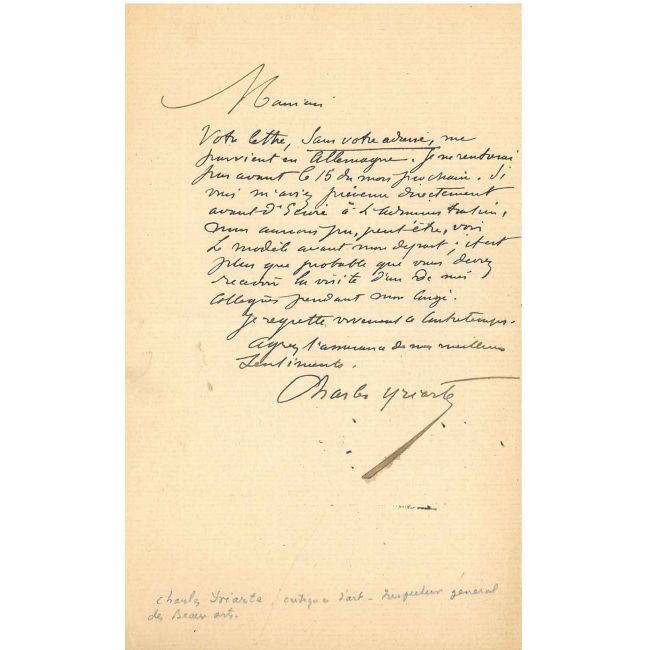 Monsieur
Votre lettre, sans votre adresse, me
parvient en Allemagne. Je ne rentrerai
pas avant le 15 du mois prochain. Si
vous m'aviez prévenu directement
avant d'Ecrire à L'administration,
nous aurions pu, peut être, voir
Le modèle avant mon départ; il est
plus que probable que vous devrez
recevoir la visite d'un de mes
collègues pendant mon congé.
Je regrette vivement ce contretemps.
Agréez l'assurance de mes meilleurs
Sentiments.
Charles Yriarte
Charles Yriarte, critique d'art - Inspecteur général
des Beaux arts.